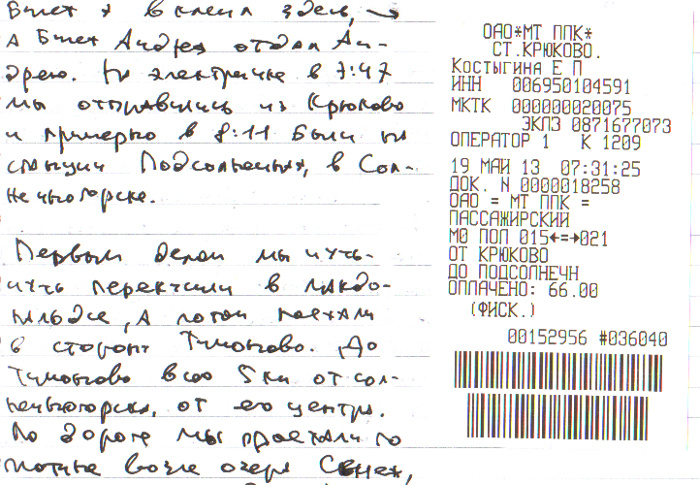 Билет я вклеил здесь, →
а Билет Андрея отдал Ан-
дрею. На электричке в 7:47
мы отправились из Крюково
и примерно в 8:11 были на
станции Подсолнечная, в Сол-
нечногорске.
Первым делом мы чуть-
чуть перекусили в макдо-
нальдсе, а потом поехали
в сторону Тимоново. До
Тимоново всего 5 км от Сол-
нечногорска, от его центра.
По дороге мы проехали по
плотине возле озера Сенеж,
ОАО*МТ ППК*
СТ.КРЮКОВО.
Костыгина Е П
ИНН 006950104591
МКТК 000000020075
ЭКЛЗ 0871677073
ОПЕРАТОР 1 К 1209
19 МАЙ 13 07:31:25
ДОК. N 0000018258
ОАО = МТ ППК =
ПАССАЖИРСКИЙ
М0 ПОП 015←=→021
ОТ КРЮКОВО
ДО ПОДСОЛНЕЧН
ОПЛАЧЕНО: 66.00
(ФИСК.)
00152956 #036040